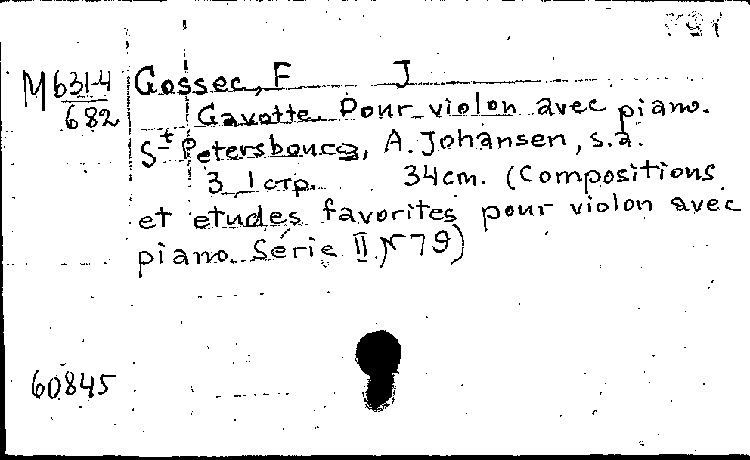 M 631-4
682
Gossec, F J
Gavotte. Pour violon avec piano.
St Petersbourg, A. Johansen, s.a.
3, 1 стр. 34 cm. (Compositions
et etudes favorites pour violon avec
piano. Série II. N 79)
60845